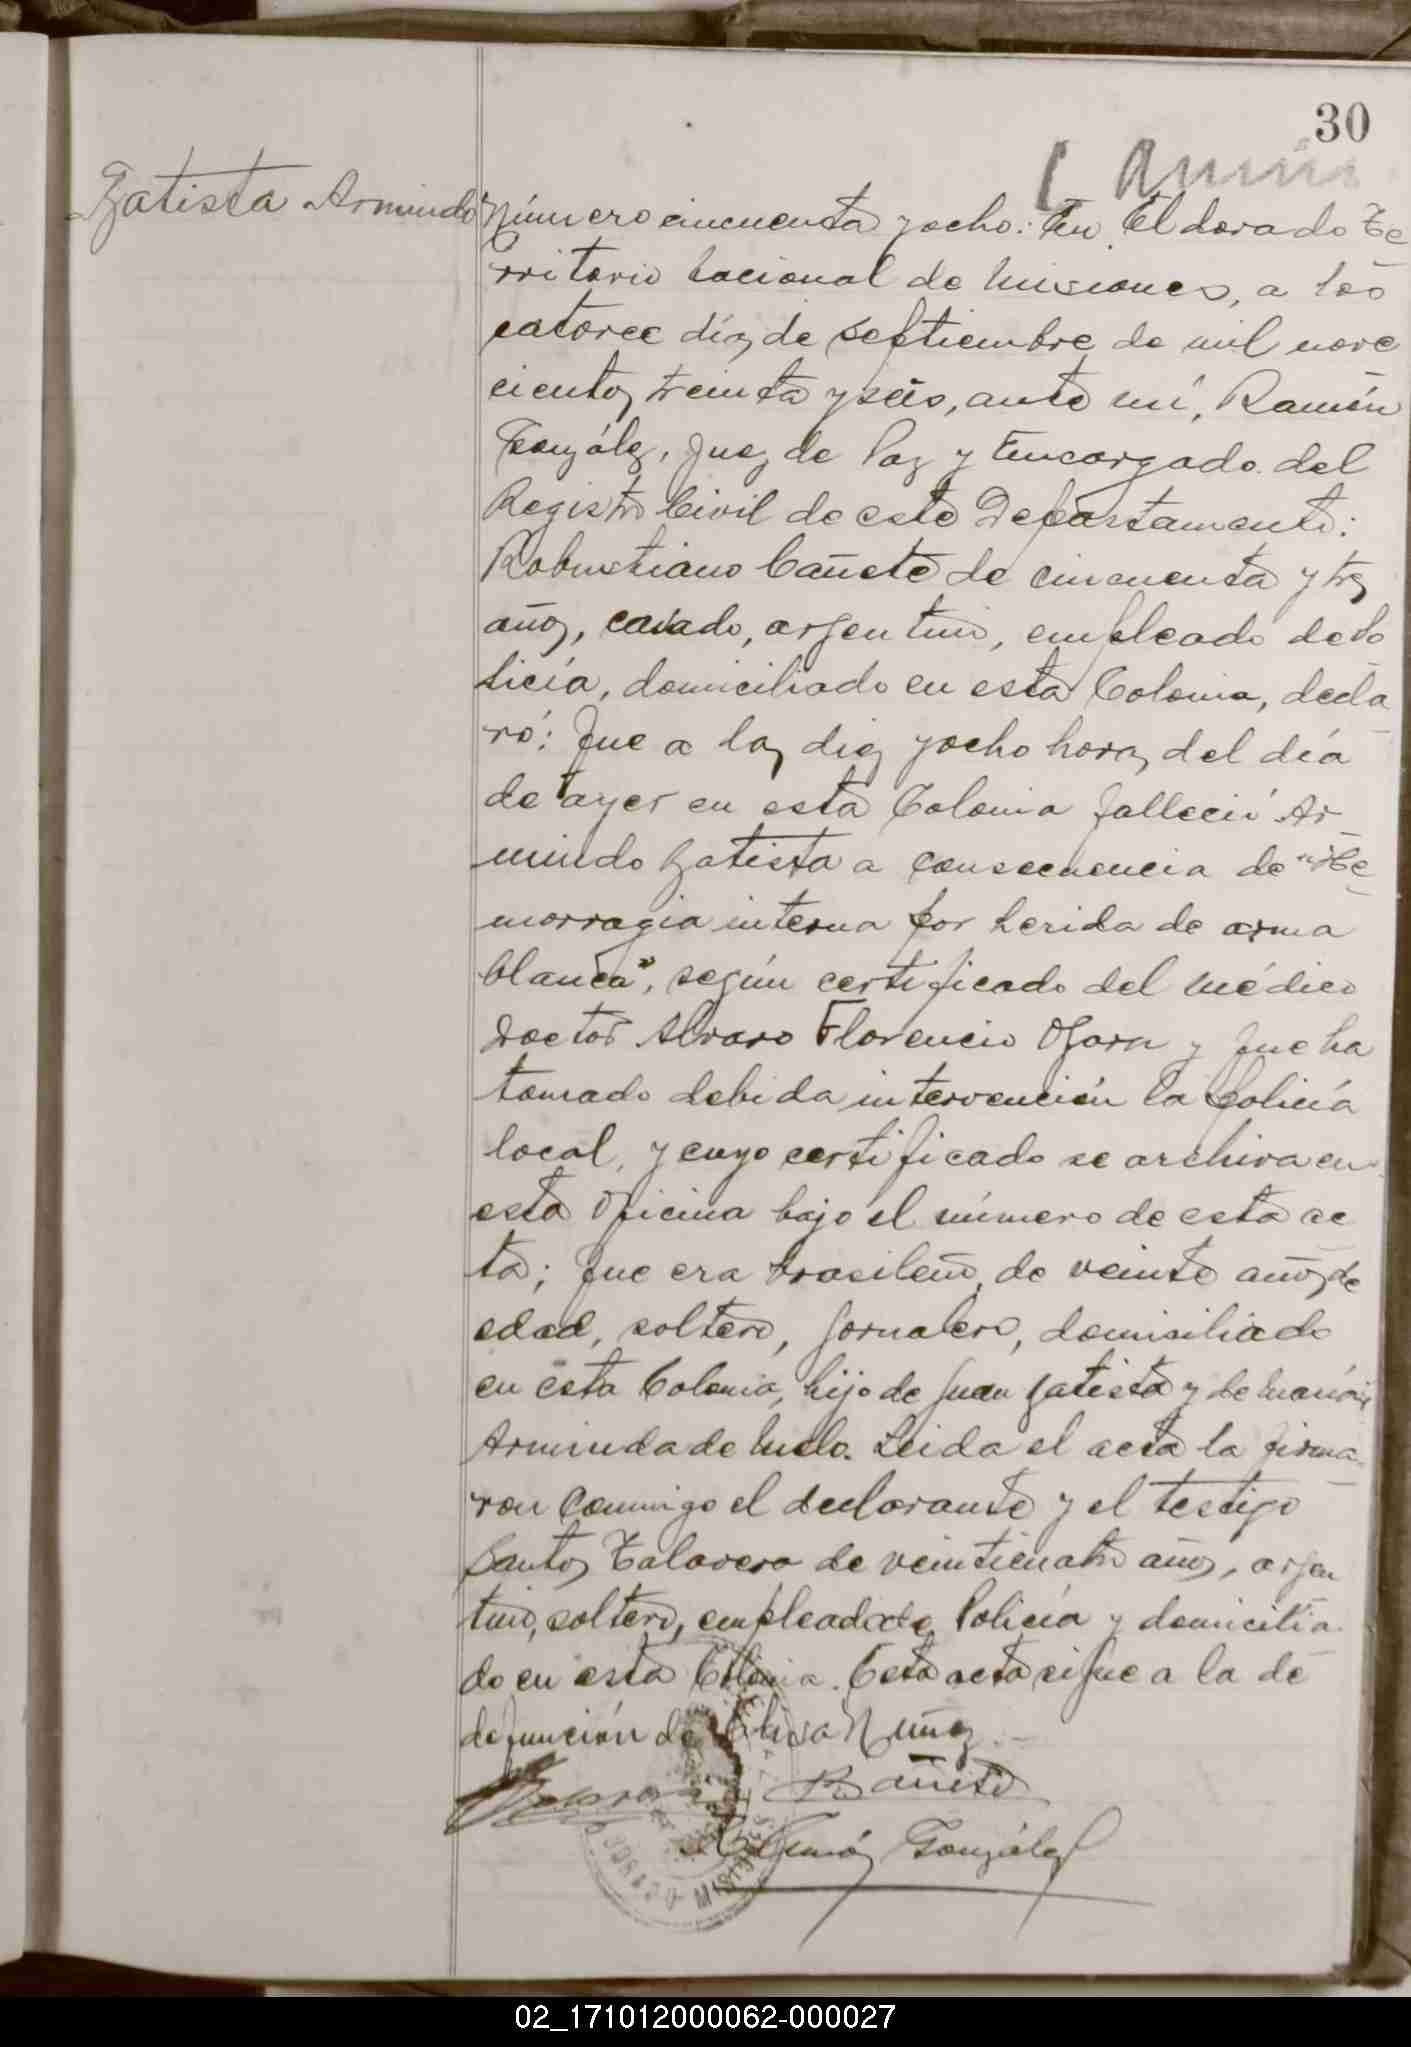 30
Batista Armindo
Número cincuenta y ocho: En Eldorado Te
rritorio Nacional de Misiones, a los
catorce días de Septiembre de mil nove
cientos treinta y seis, ante mí, Ramón
González, Juez de Paz y Encargado del
Registro Civil de este Departamento:
Robustiano Cañete de cincuenta y tres
años, casado, argentino, empleado de Po
licía, domiciliado en esta Colonia, decla
ró: Que a las diez y ocho horas del día
de ayer en esta Colonia falleció Ar
mindo Batista a consecuencia de "He
morragia interna por herida de arma
blanca", según certificado del médico
Doctor Alvaro Florencio y que ha
tomado debida intervención la Policía
local, y cuyo certificado se archiva en
esta Oficina bajo el número de esta ac
ta; Que era brasileño, de veinte años de
edad, soltero, jornalero, domisiliado
en esta Colonia, hijo de Juan Batista y de María
Arminda de Melo. Leida el acta la firma
ron conmigo el declarante y el testigo
Santos Talavera de veinticuatro años, argen
tino, soltero, empleado de Policía y domicilia
do en esta Colonia. Esta acta sigue a la de
defunción de Elisa Nuñez.
R Cañete
Ramón González
02_171012000062-000027